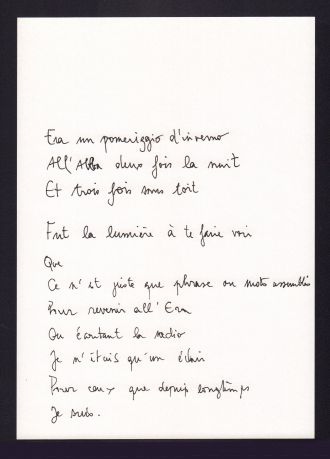 Era un pomeriggio d'inverno
All'Alba deux fois la nuit
Et trois fois sous toit
Fut la lumière à te faire voir
Que
Ce n'est juste que phrase ou mots assemblés
Pour revenir all'Era
Ou écoutant la radio
Je n'étais qu'un éclair
Pour ceux que depuis longtemps
Je suis.